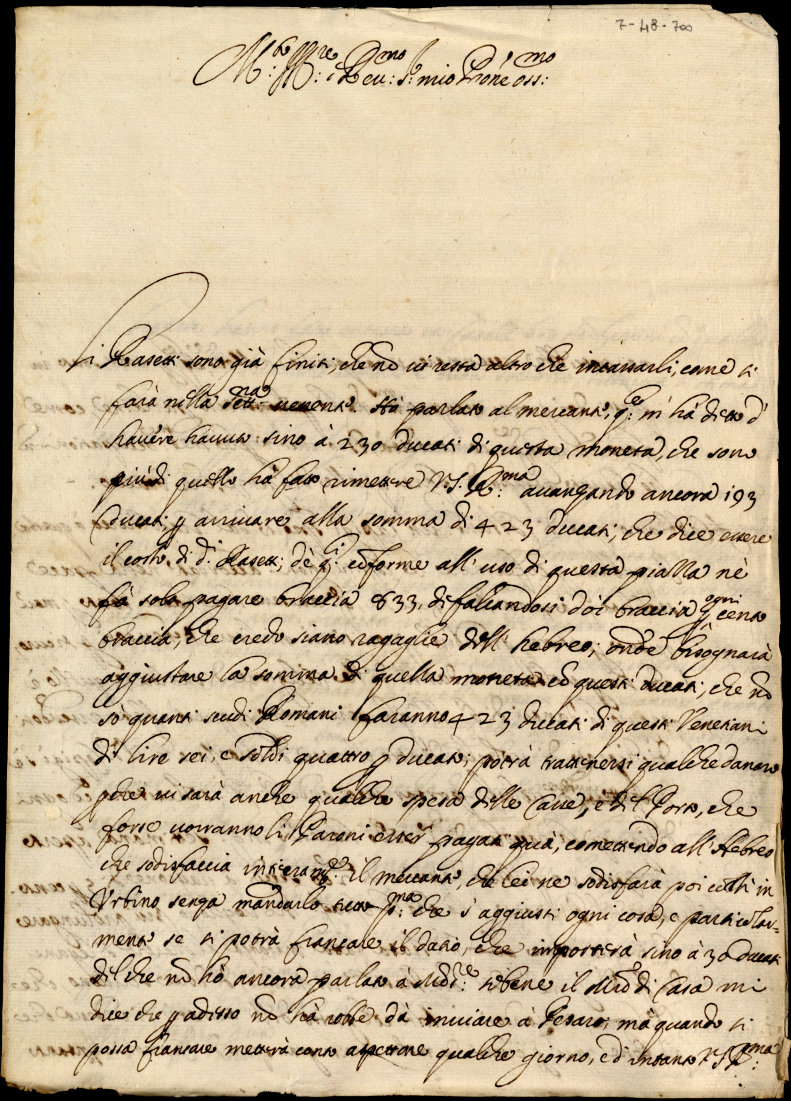 7-48-700
M.to Ill.re e Rev.mo S.r mio P'rone oss.mo
Li Rasetti sono già finiti, che nō vi resta altro che incassarli, come si
farà nella sett.na uenente. Hò parlato al mercante, q.le m'hà detto d'
hauere hauuto sino à 230 ducati di questa moneta, che sono
più di quello hà fatto rimettere V.S. R.ma auanzando ancora 193
Ducati p arriuare alla somma di 423 ducati, che dice essere
il costo di d.i Rasetti, de q.li conforme all'uso di questa piazza nè
fà solo pagare braccia 833, difalcandosi doi braccia p ogni cento
braccia, che credo siano regaglie dell'hebreo; onde bisognarà
aggiustare la somma di quella moneta cō questi ducati, che nō
sò quanti scudi Romani faranno 423 ducati di questi Venetiani
di lire sei, e soldi quattro p ducato; potrà trattenersi qualche danaro
p che ui sarà anche qualche spesa delle Casse, e del Porto, che
forse uorranno li Paroni esser pagati quà, comettendo all'Hebreo
che sodisfaccia interam.te il mercante, che lei ne sodisfarà poi costì in
Vrbino senza mandarlo tutto p.ma che s'aggiusti ogni cosa, e particolar=
mente se si potrà francare il datio, che importerà sino à 30 ducati
del che nō hò ancora parlato à sebene il M.ro di Casa mi
dice che p adesso nō hà robbe da inuiare à Pesaro; mà quando si
possa francare metterà conto aspettare qualche giorno, ed intanto V.S. R.ma